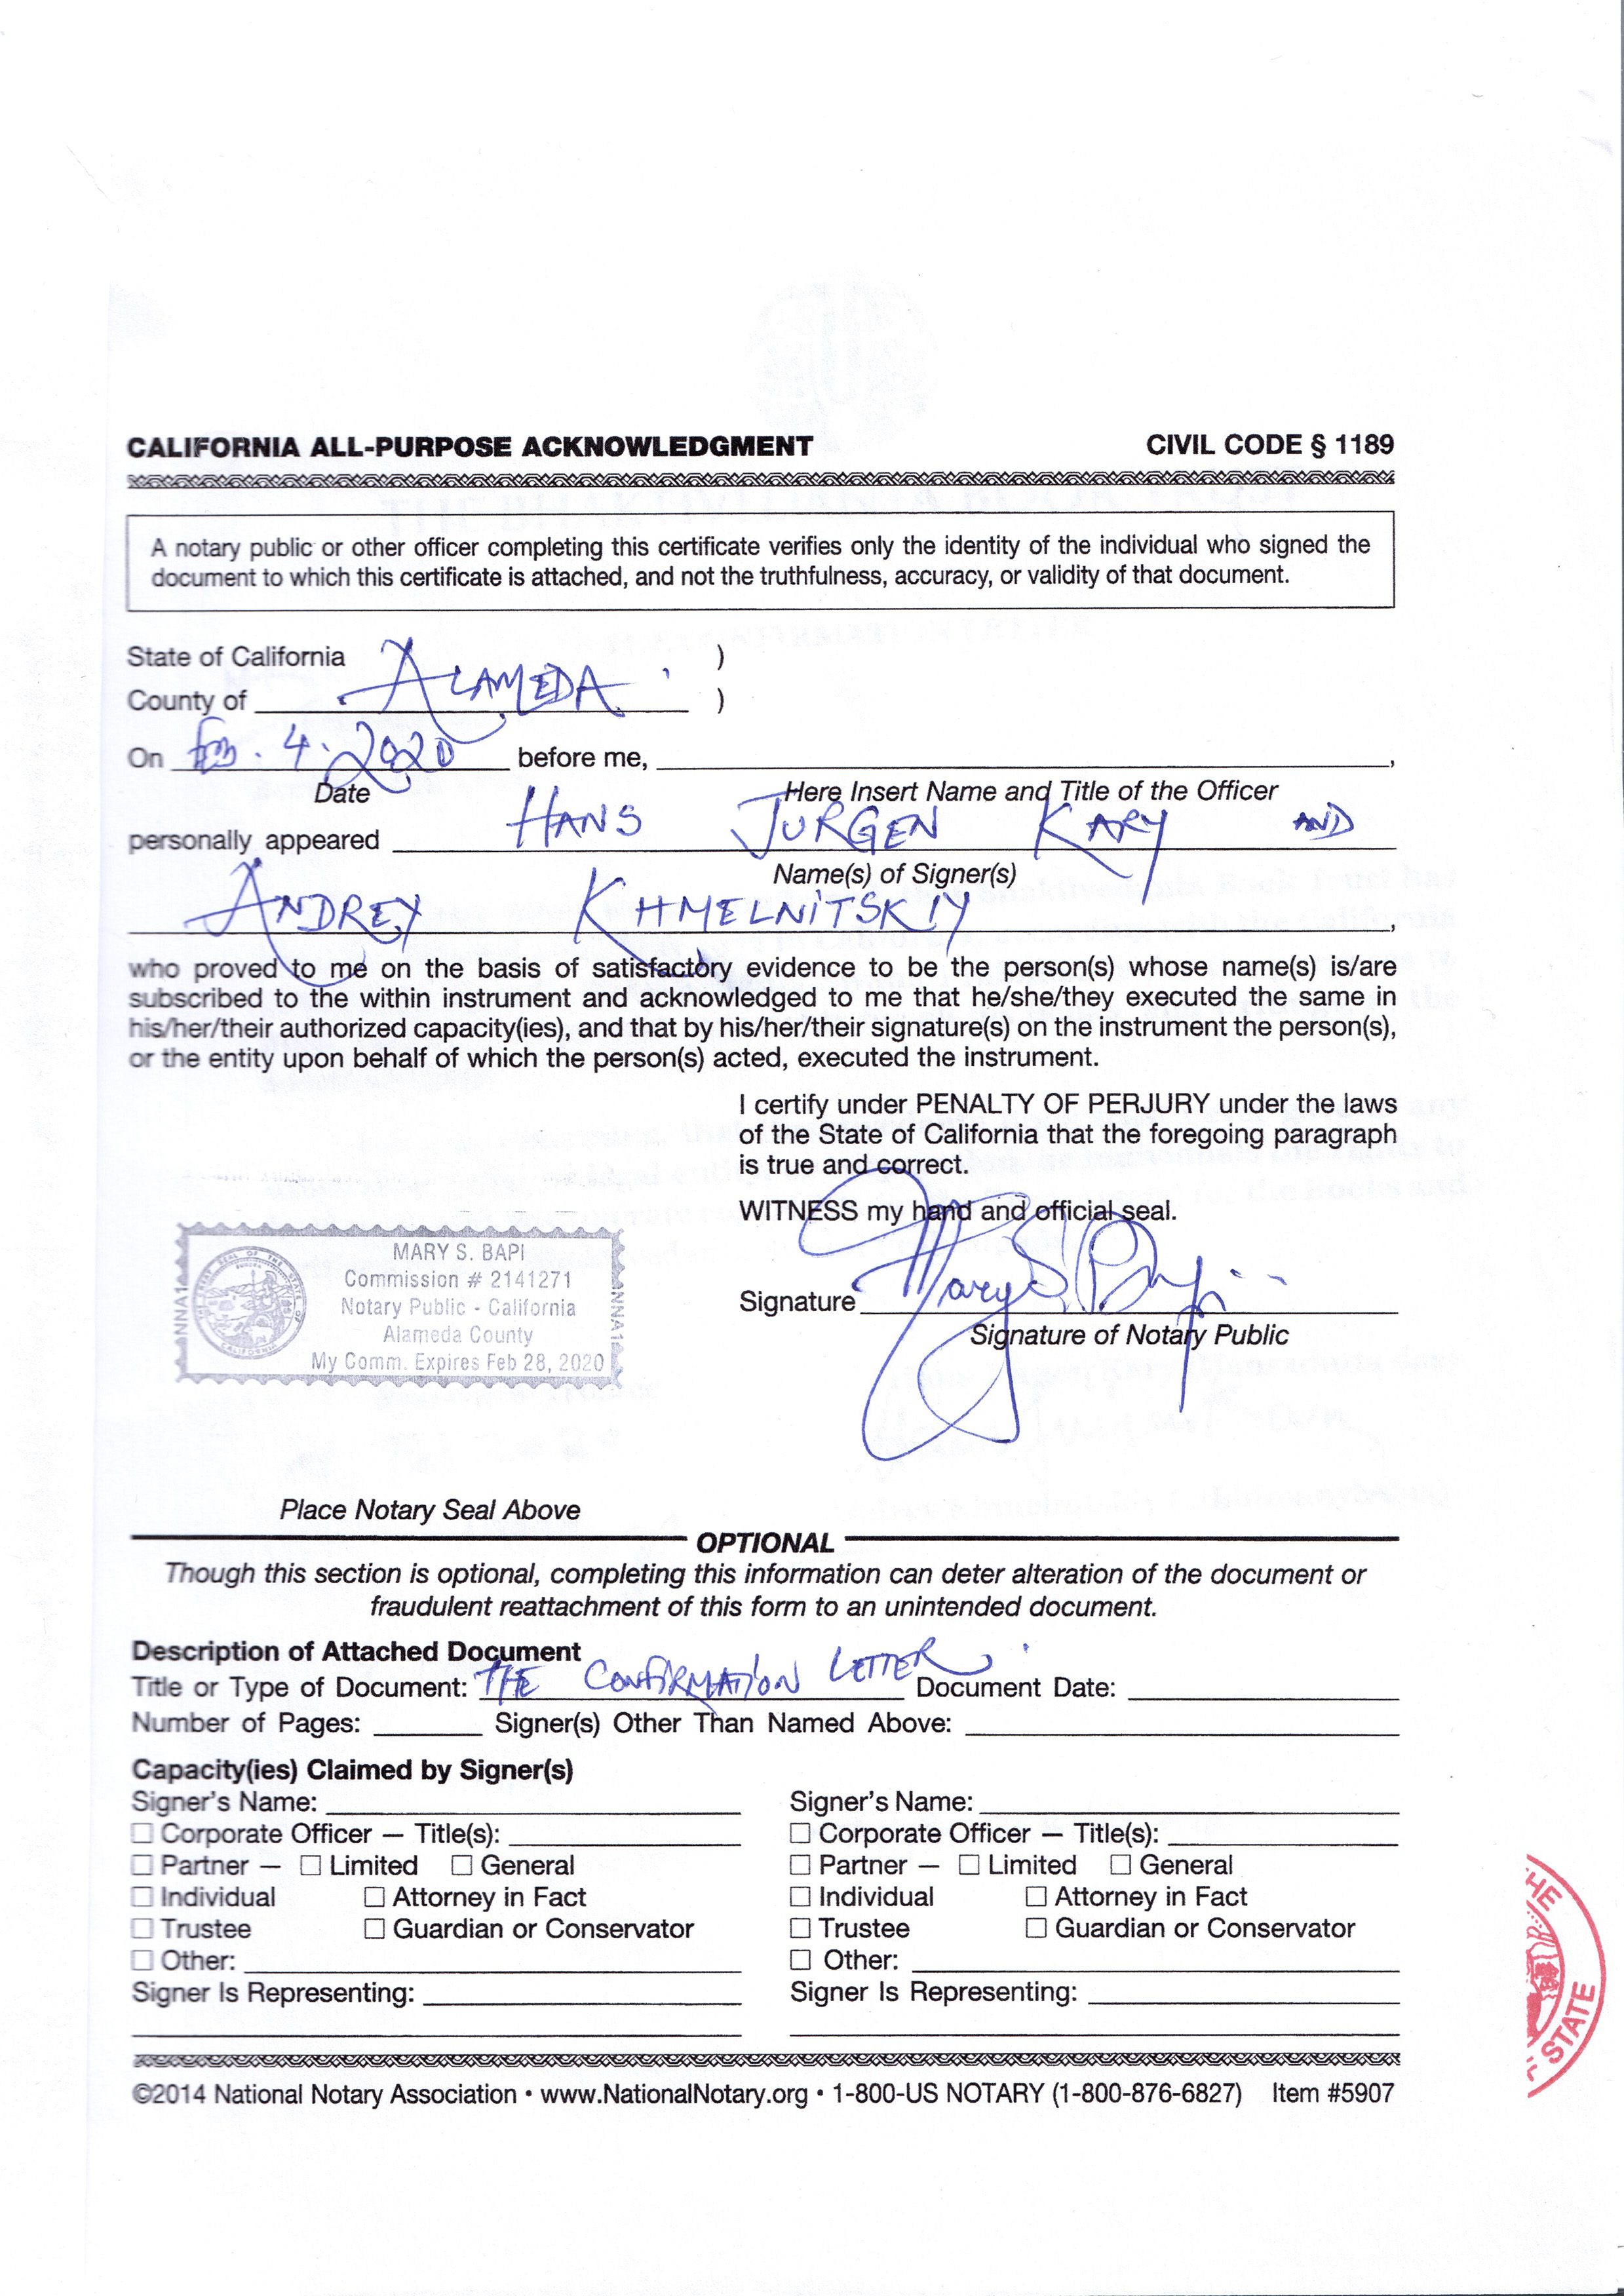 CALIFORNIA ALL-PURPOSE ACKNOWLEDGMENT CIVIL CODE § 1189
A notary public or other officer completing this certificate verifies only the identity of the individual who signed the
document to which this certificate is attached, and not the truthfulness, accuracy, or validity of that document.
State of California )
County of ALAMEDA )
On Feb. 4. 2020 before me, ,
Date Here Insert Name and Title of the Officer
personally appeared HANS JURGEN KARY AND
Name(s) of Signer(s)
ANDREY KHMELNITSKIY ,
who proved to me on the basis of satisfactory evidence to be the person(s) whose name(s) is/are
subscribed to the within instrument and acknowledged to me that he/she/they executed the same in
his/her/their authorized capacity(ies), and that by his/her/their signature(s) on the instrument the person(s),
or the entity upon behalf of which the person(s) acted, executed the instrument.
I certify under PENALTY OF PERJURY under the laws
of the State of California that the foregoing paragraph
is true and correct.
WITNESS my hand and official seal.
MARY S. BAPI
Commission # 2141271
Notary Public - California
Alameda County
My Comm. Expires Feb 28, 2020
Signature Mary S. Bapi
Signature of Notary Public
Place Notary Seal Above
OPTIONAL
Though this section is optional, completing this information can deter alteration of the document or
fraudulent reattachment of this form to an unintended document.
Description of Attached Document
Title or Type of Document: THE CONFIRMATION LETTER Document Date:
Number of Pages: Signer(s) Other Than Named Above:
Capacity(ies) Claimed by Signer(s)
Signer's Name: Signer's Name:
☐ Corporate Officer — Title(s): ☐ Corporate Officer — Title(s):
☐ Partner — ☐ Limited ☐ General ☐ Partner — ☐ Limited ☐ General
☐ Individual ☐ Attorney in Fact ☐ Individual ☐ Attorney in Fact
☐ Trustee ☐ Guardian or Conservator ☐ Trustee ☐ Guardian or Conservator
☐ Other: ☐ Other:
Signer Is Representing: Signer Is Representing:
THE
STATE
©2014 National Notary Association • www.NationalNotary.org • 1-800-US NOTARY (1-800-876-6827) Item #5907